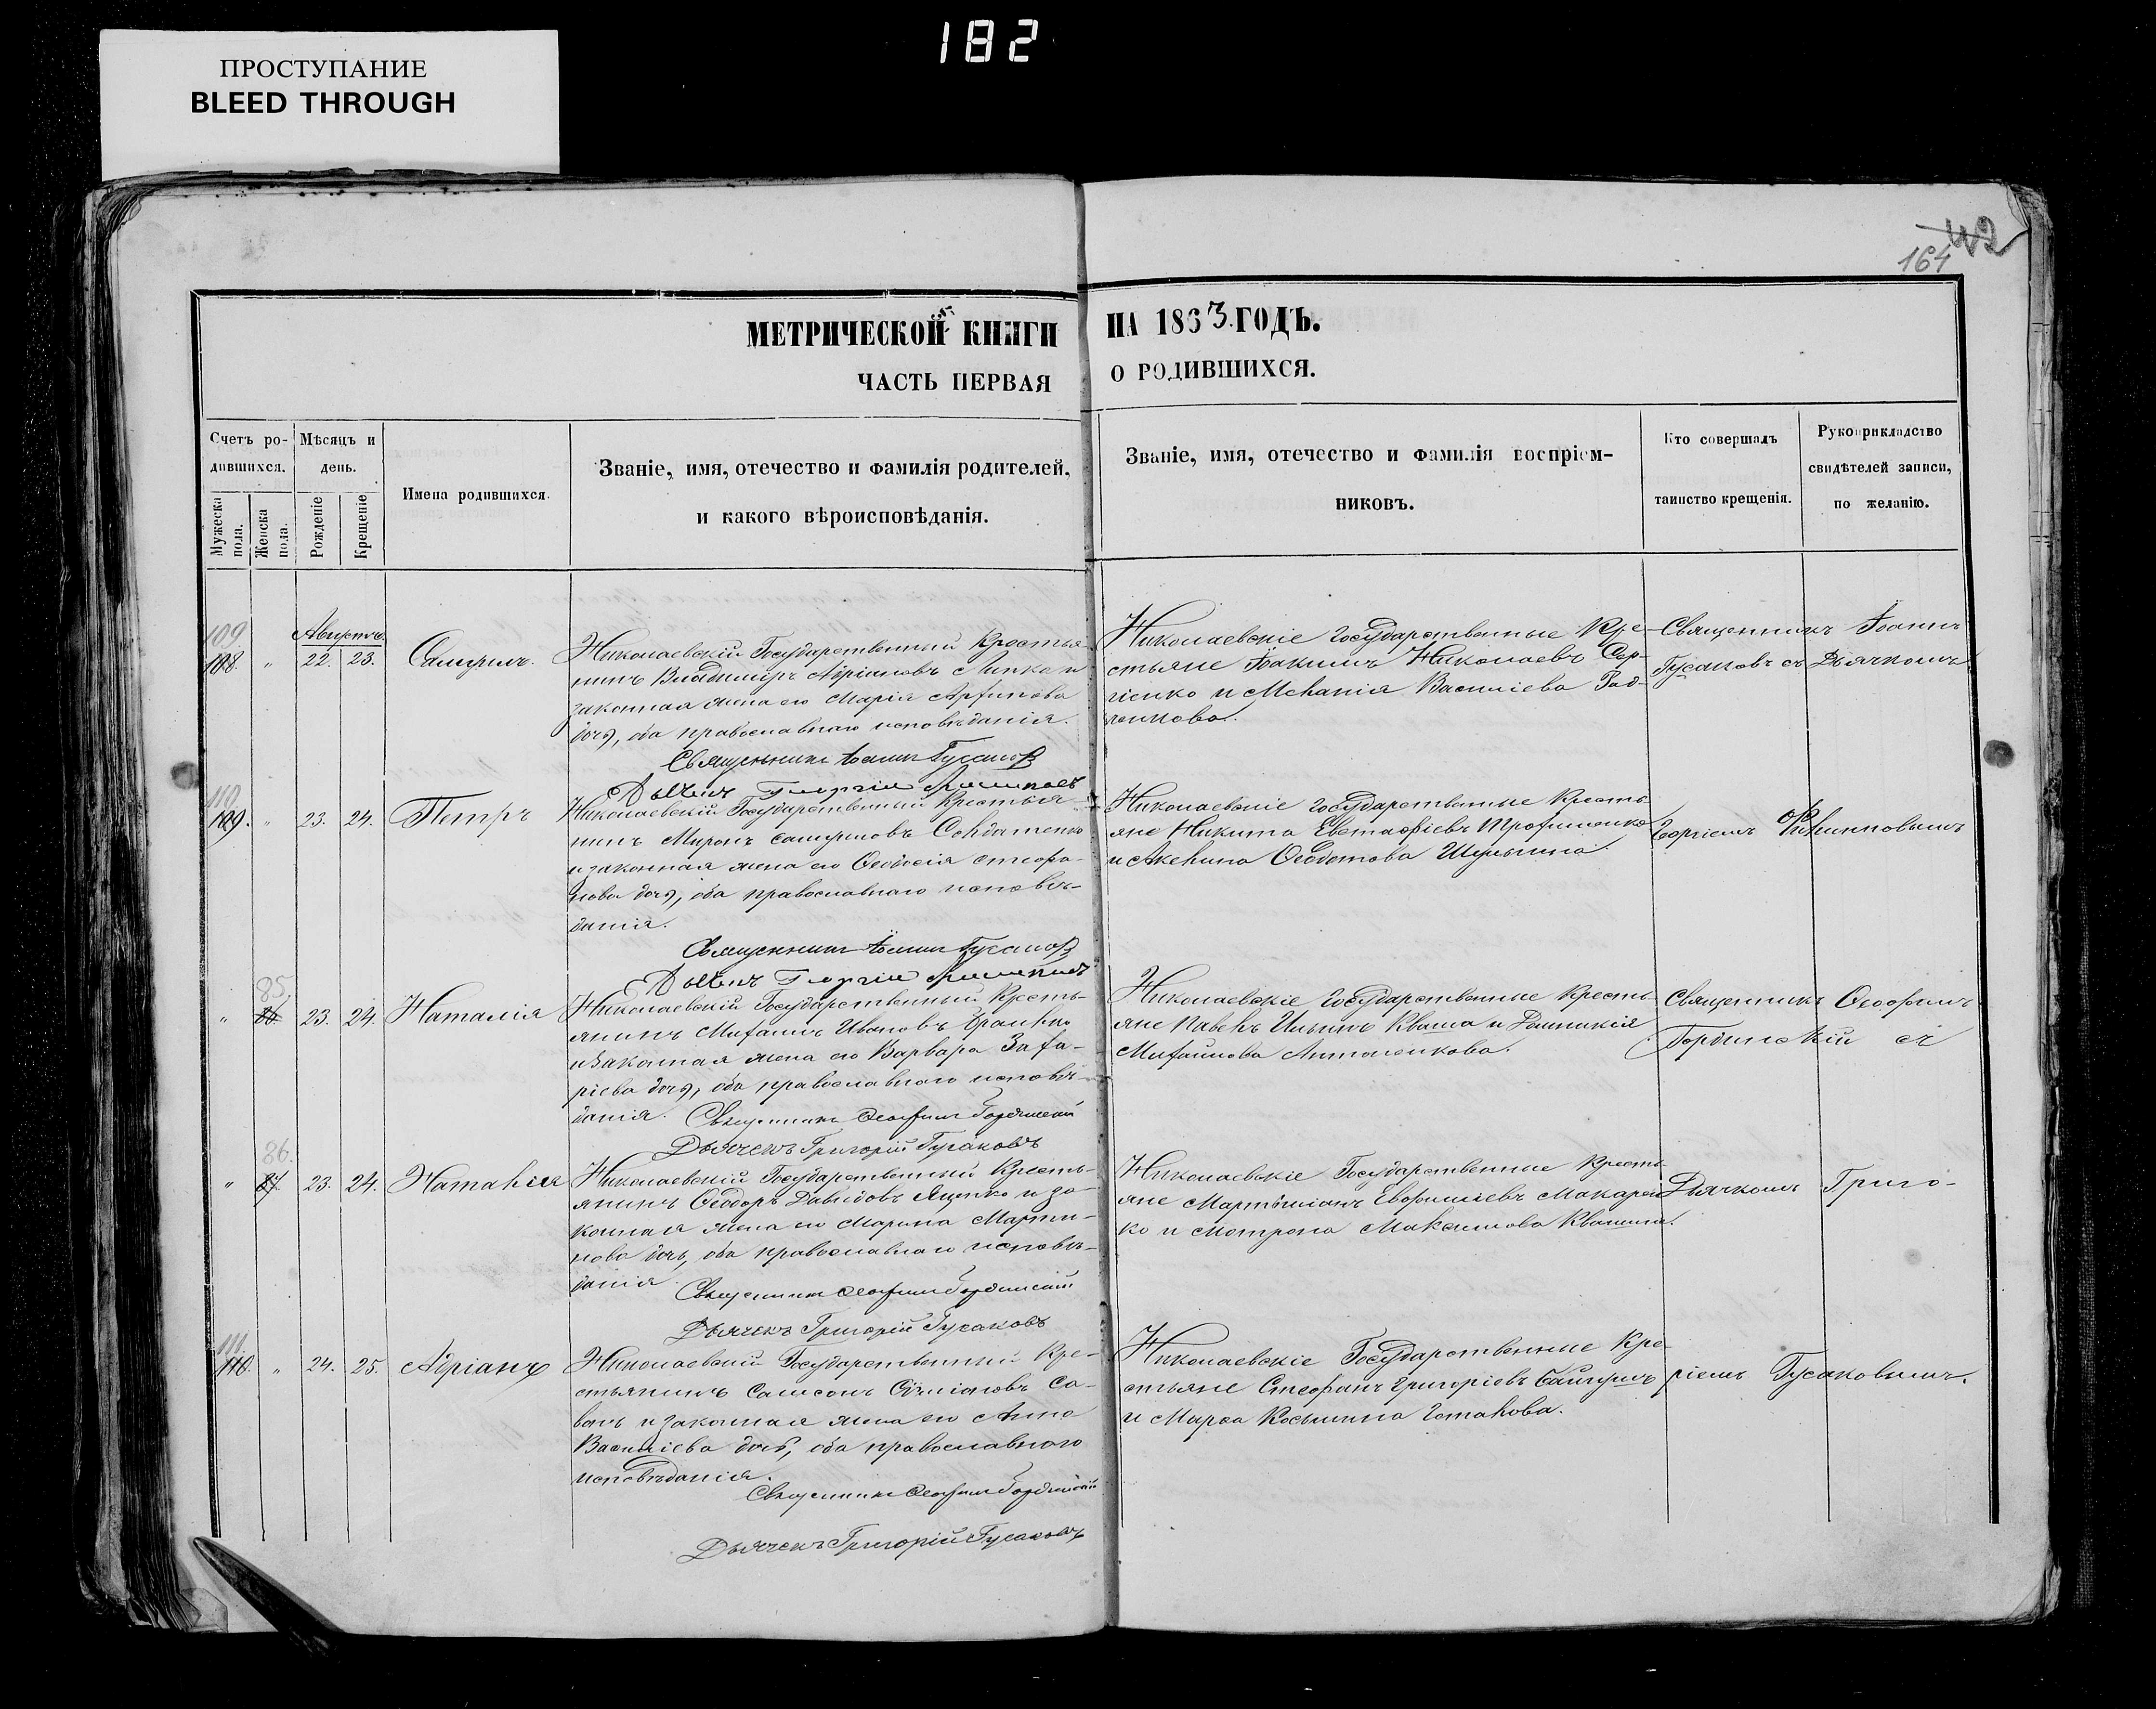 182
ПРОСТУПАНИЕ
BLEED THROUGH
42
164
МЕТРИЧЕСКОЙ КНИГИ НА 1863 ГОДЪ.
ЧАСТЬ ПЕРВАЯ О РОДИВШИХСЯ.
Счетъ ро-
дившихся.
Мужеска пола.
Женска пола.
Мѣсяцъ и
день.
Рожденіе
Крещеніе
Имена родившихся.
Званіе, имя, отечество и фамилія родителей,
и какого вѣроисповѣданія.
Званіе, имя, отечество и фамилія воспріем-
никовъ.
Кто совершалъ
таинство крещенія.
Рукоприкладство
свидѣтелей записи,
по желанію.
109
108. " Августъ. 22. 23.
Самуилъ.
Николаевскій Государственный Крестья-
нинъ Владимиръ Адріановъ и
законная жена его Марія
дочь, оба православнаго исповѣданія.
Священникъ Іоаннъ Гусаковъ
Дьячекъ Георгій
Николаевскіе Государственные Кре-
стьяне Іоакимъ Николаевъ Сер-
гіенко и Меланія Василіева Рад-
ченкова.
Священникъ Іоаннъ
Гусаковъ съ Дьячкомъ
110
109. " 23. 24.
Петръ
Николаевскій Государственный Крестья-
нинъ Миронъ Самуиловъ Солдатенко
и законная жена его Ѳеодосія Стефа-
нова дочь, оба православнаго исповѣ-
данія.
Священникъ Іоаннъ Гусаковъ
Дьячекъ Георгій
Николаевскіе Государственные Кресть-
яне Никита Евстафіевъ Трофименко
и Акелина Ѳеодотова
Георгіемъ
85.
" 86. 23. 24.
Наталія
Николаевскій Государственный Кресть-
янинъ Михаилъ Ивановъ
и законная жена его Варвара Заха-
ріева дочь, оба православнаго исповѣ-
данія. Священникъ Ѳеофилъ Гординскій
Дьячекъ Григорій Гусаковъ
Николаевскіе Государственные Кресть-
яне Павелъ Ильинъ Кваша и Домникія
Михайлова Антоненкова.
Священникъ Ѳеофилъ
Гординскій съ
86.
" 87. 23. 24.
Наталія
Николаевскій Государственный Кресть-
янинъ Ѳеодоръ Давидовъ Яценко и за-
конная жена его Марина Марти-
нова дочь, оба православнаго исповѣ-
данія. Священникъ Ѳеофилъ Гординскій
Дьячекъ Григорій Гусаковъ
Николаевскіе Государственные Кресть-
яне Мартиніанъ Евфиміевъ Макарен-
ко и Мотрона Максимова Квашина.
Дьячкомъ Григо-
111.
110. " 24. 25.
Адріанъ
Николаевскій Государственный Кре-
стьянинъ Самсонъ Са-
вонъ и законная жена его Анна
Василіева дочь, оба православнаго
исповѣданія.
Священникъ Ѳеофилъ Гординскій
Дьячекъ Григорій Гусаковъ
Николаевскіе Государственные Кре-
стьяне Стефанъ Григоріевъ
и Марѳа Косьмина
ріемъ Гусаковымъ.